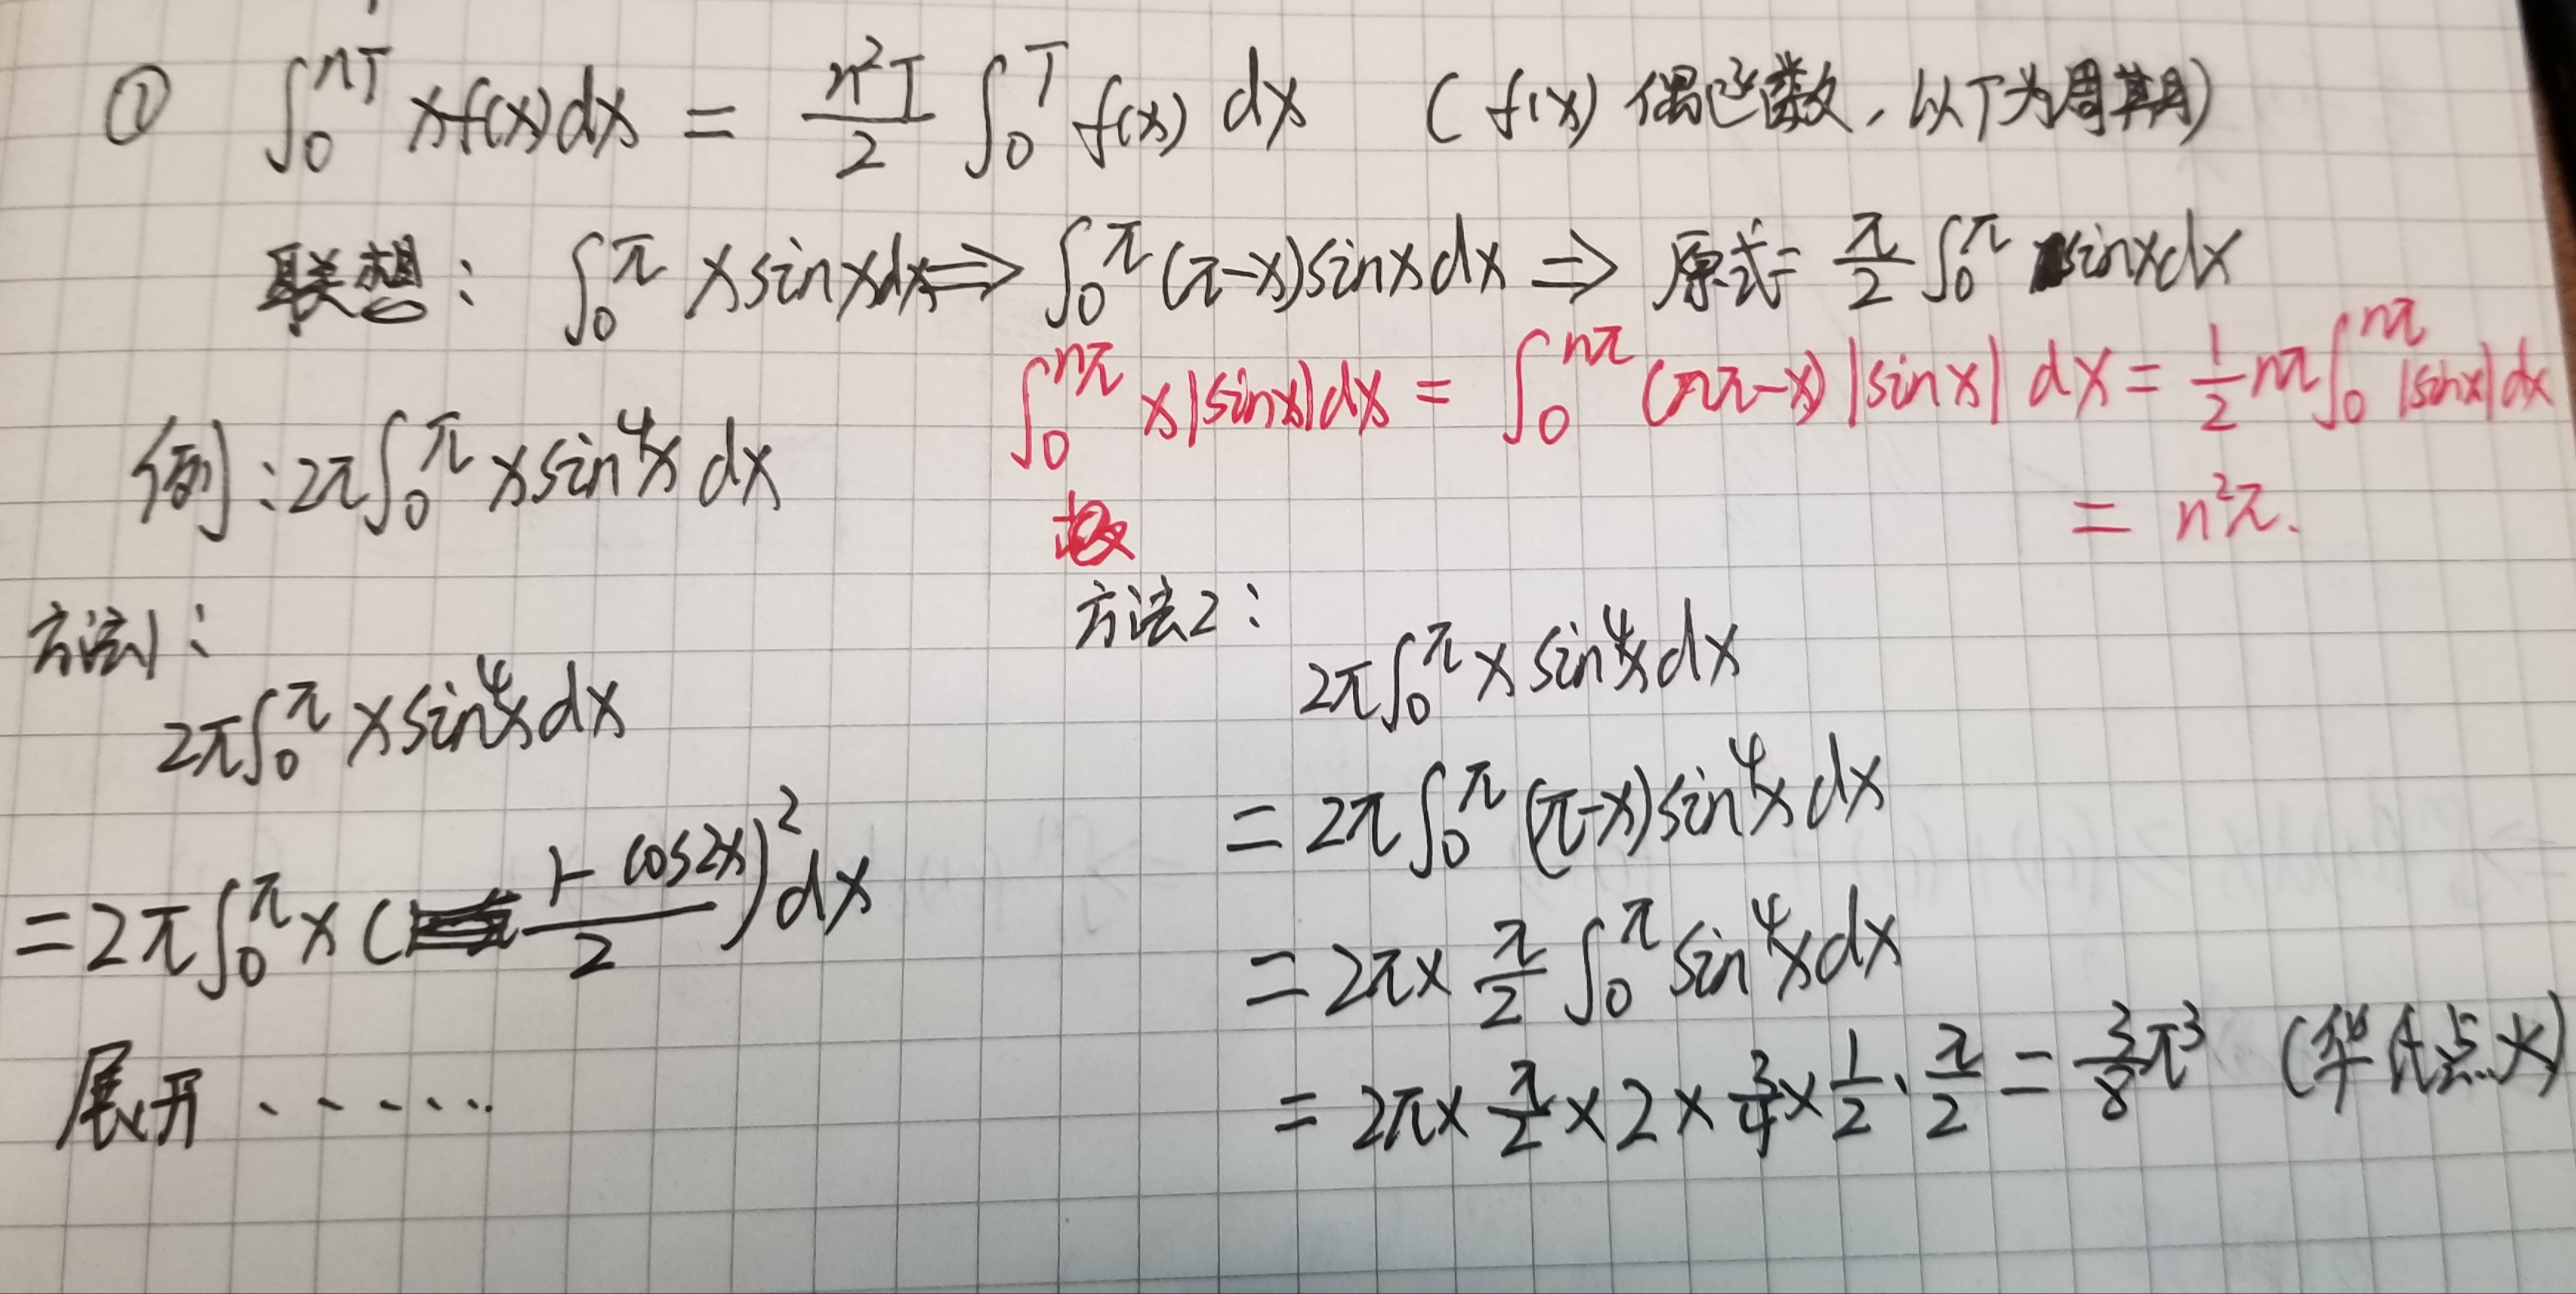 ① ∫₀ⁿᵀ xf(x)dx = n²T/2 ∫₀ᵀ f(x) dx (f(x) 偶函数，以T为周期)
联想： ∫₀^π x sinxdx ⇒ ∫₀^π (π-x)sinxdx ⇒ 原式= π/2 ∫₀^π sinxdx
∫₀^nπ x|sinx|dx = ∫₀^nπ (nπ-x)|sinx| dx = 1/2 nπ∫₀^nπ |sinx|dx
= n²π.
例：2π∫₀^π xsin⁴x dx
方法1：
2π∫₀^π xsin⁴xdx
=2π∫₀^π x(1-cos2x/2)²dx
展开......
方法2：
2π∫₀^π x sin⁴xdx
= 2π∫₀^π (π-x)sin⁴xdx
= 2π× π/2 ∫₀^π sin⁴xdx
= 2π× π/2 ×2× 3/4 × 1/2 · π/2 = 3/8 π³ (华氏点火)